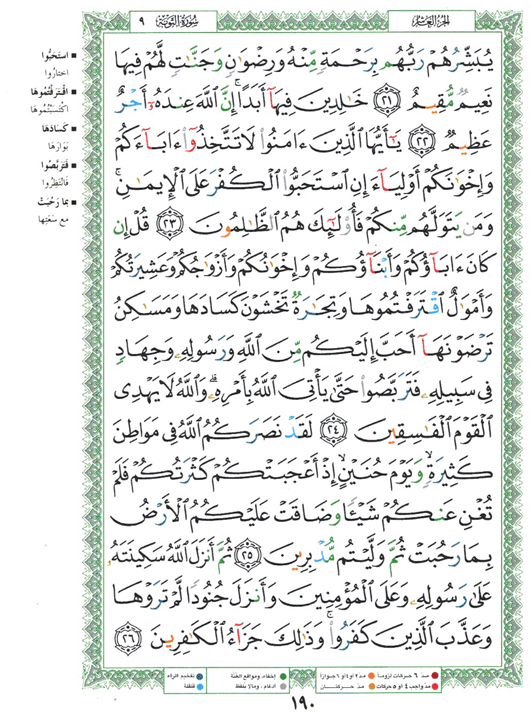 الجزء العاشر
سورة التوبة
٩
يُبَشِّرُهُمْ رَبُّهُم بِرَحْمَةٍ مِّنْهُ وَرِضْوَٰنٍ وَجَنَّٰتٍ لَّهُمْ فِيهَا
نَعِيمٌ مُّقِيمٌ ٢١ خَٰلِدِينَ فِيهَآ أَبَدًا إِنَّ ٱللَّهَ عِندَهُۥٓ أَجْرٌ
عَظِيمٌ ٢٢ يَٰٓأَيُّهَا ٱلَّذِينَ ءَامَنُوا۟ لَا تَتَّخِذُوٓا۟ ءَابَآءَكُمْ
وَإِخْوَٰنَكُمْ أَوْلِيَآءَ إِنِ ٱسْتَحَبُّوا۟ ٱلْكُفْرَ عَلَى ٱلْإِيمَٰنِ ۚ
وَمَن يَتَوَلَّهُم مِّنكُمْ فَأُو۟لَٰٓئِكَ هُمُ ٱلظَّٰلِمُونَ ٢٣ قُلْ إِن
كَانَ ءَابَآؤُكُمْ وَأَبْنَآؤُكُمْ وَإِخْوَٰنُكُمْ وَأَزْوَٰجُكُمْ وَعَشِيرَتُكُمْ
وَأَمْوَٰلٌ ٱقْتَرَفْتُمُوهَا وَتِجَٰرَةٌ تَخْشَوْنَ كَسَادَهَا وَمَسَٰكِنُ
تَرْضَوْنَهَآ أَحَبَّ إِلَيْكُم مِّنَ ٱللَّهِ وَرَسُولِهِۦ وَجِهَادٍ
فِى سَبِيلِهِۦ فَتَرَبَّصُوا۟ حَتَّىٰ يَأْتِىَ ٱللَّهُ بِأَمْرِهِۦ ۗ وَٱللَّهُ لَا يَهْدِى
ٱلْقَوْمَ ٱلْفَٰسِقِينَ ٢٤ لَقَدْ نَصَرَكُمُ ٱللَّهُ فِى مَوَاطِنَ
كَثِيرَةٍ ۙ وَيَوْمَ حُنَيْنٍ ۙ إِذْ أَعْجَبَتْكُمْ كَثْرَتُكُمْ فَلَمْ
تُغْنِ عَنكُمْ شَيْـًٔا وَضَاقَتْ عَلَيْكُمُ ٱلْأَرْضُ
بِمَا رَحُبَتْ ثُمَّ وَلَّيْتُم مُّدْبِرِينَ ٢٥ ثُمَّ أَنزَلَ ٱللَّهُ سَكِينَتَهُۥ
عَلَىٰ رَسُولِهِۦ وَعَلَى ٱلْمُؤْمِنِينَ وَأَنزَلَ جُنُودًا لَّمْ تَرَوْهَا
وَعَذَّبَ ٱلَّذِينَ كَفَرُوا۟ ۚ وَذَٰلِكَ جَزَآءُ ٱلْكَٰفِرِينَ ٢٦
استَحَبُّوا
اختاروا
اقتَرَفْتُمُوها
اكتَسَبْتُمُوها
كَسَادَها
بَوَارَها
فَتَرَبَّصُوا
فَانْتَظِرُوا
بِمَا رَحُبَتْ
مع سَعَتِها
مد ٦ حركات لزوماً
مد ٢ أو ٤ أو ٦ جوازاً
إخفاء، ومواقع الغنّة
تفخيم الراء
مد واجب ٤ أو ٥ حركات
مد حركتان
إدغام، وما لا يلفظ
قلقلة
١٩٠